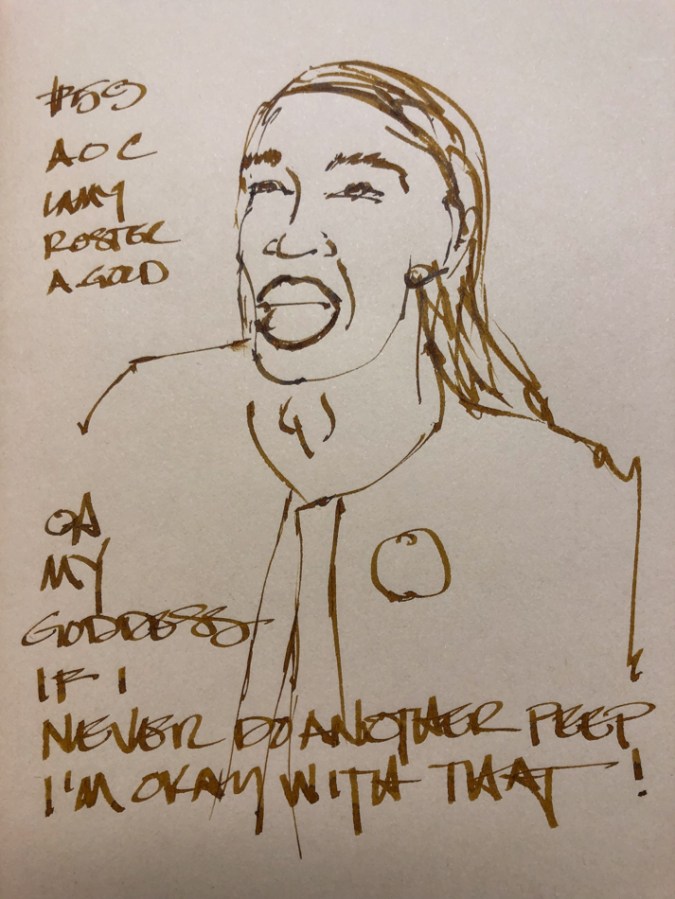 #59
AOC
LAMY
ROSTER
A. GOLD
OH
MY
GODDESS
IF I
NEVER DO ANOTHER PEEP
I'M OKAY WITH THAT!